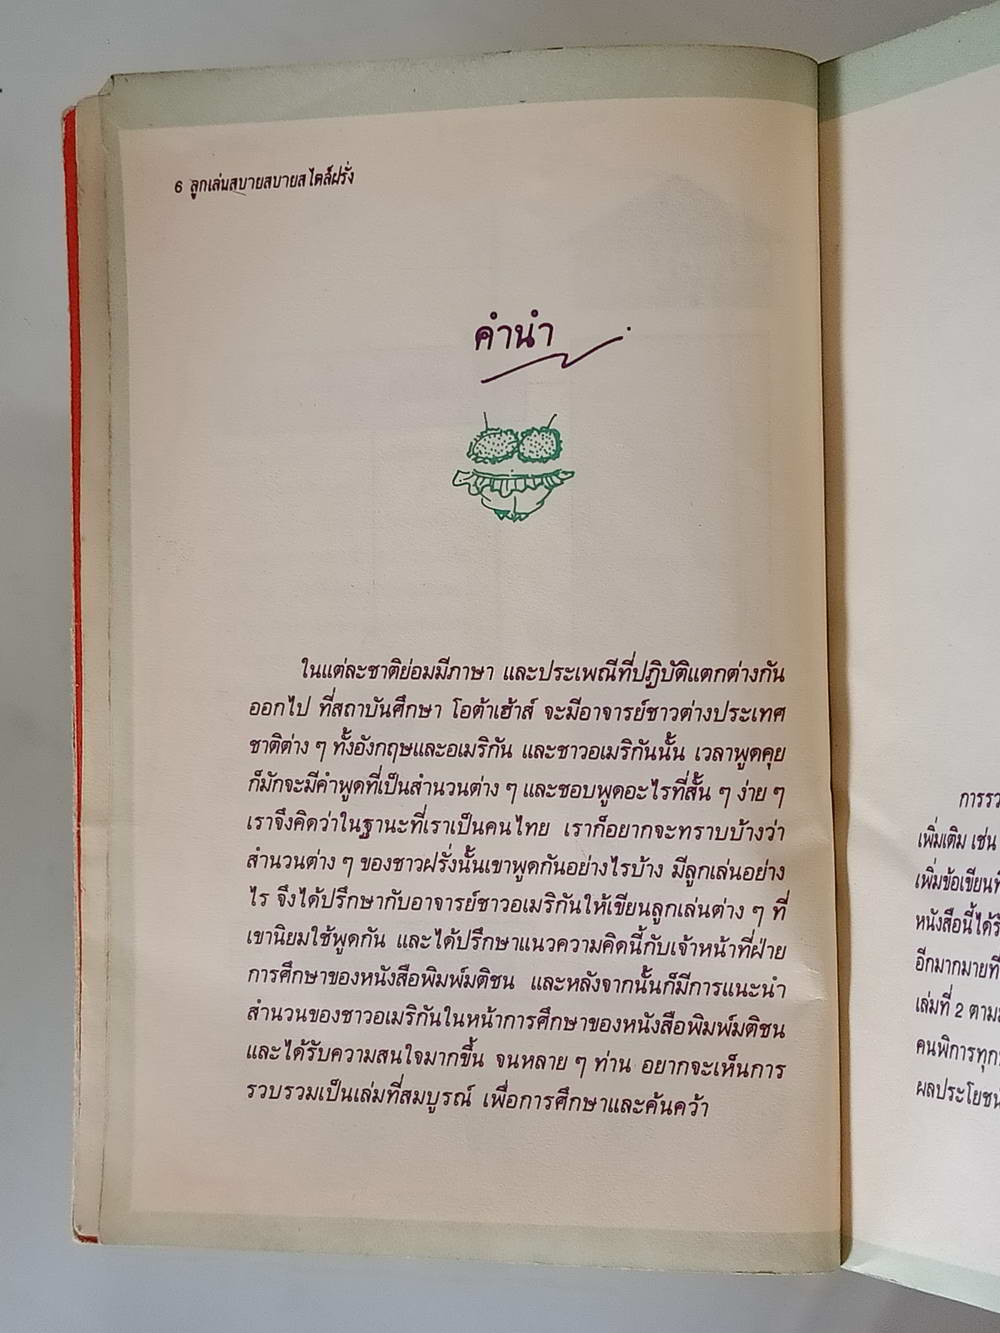 6 ลูกเล่นสบายสบายสไตล์ฝรั่ง
คำนำ
ในแต่ละชาติย่อมมีภาษา และประเพณีที่ปฏิบัติแตกต่างกัน
ออกไป ที่สถาบันศึกษา โอต้าเฮ้าส์ จะมีอาจารย์ชาวต่างประเทศ
ชาติต่าง ๆ ทั้งอังกฤษและอเมริกัน และชาวอเมริกันนั้น เวลาพูดคุย
ก็มักจะมีคำพูดที่เป็นสำนวนต่าง ๆ และชอบพูดอะไรที่สั้น ๆ ง่าย ๆ
เราจึงคิดว่าในฐานะที่เราเป็นคนไทย เราก็อยากจะทราบบ้างว่า
สำนวนต่าง ๆ ของชาวฝรั่งนั้นเขาพูดกันอย่างไรบ้าง มีลูกเล่นอย่าง
ไร จึงได้ปรึกษากับอาจารย์ชาวอเมริกันให้เขียนลูกเล่นต่าง ๆ ที่
เขานิยมใช้พูดกัน และได้ปรึกษาแนวความคิดนี้กับเจ้าหน้าที่ฝ่าย
การศึกษาของหนังสือพิมพ์มติชน และหลังจากนั้นก็มีการแนะนำ
สำนวนของชาวอเมริกันในหน้าการศึกษาของหนังสือพิมพ์มติชน
และได้รับความสนใจมากขึ้น จนหลาย ๆ ท่าน อยากจะเห็นการ
รวบรวมเป็นเล่มที่สมบูรณ์ เพื่อการศึกษาและค้นคว้า
เพิ่มเติม เช่น
เพิ่มข้อเขียน
หนังสือนี้ได้
อีกมากมายที่
เล่มที่ 2 ตาม
คนพิการทุก
ผลประโยชน์